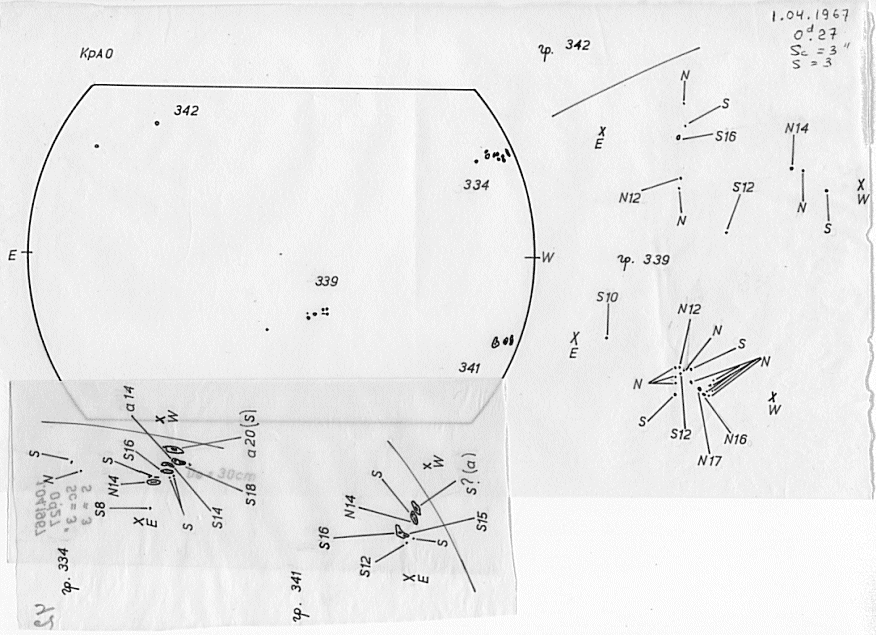 1.04.1967
0ᵈ.27
Sc = 3"
S = 3
КрАО
гр. 342
342
N
S
S16
X
E
N14
N
S
X
W
334
N12
N
S12
E
W
гр. 339
339
S10
X
E
N12
N
S
N
N
S
S12
N17
N16
X
W
341
a 14
X
W
a 20 (S)
S
N
S
S16
N14
S8
X E
S
S14
S18
гр. 334
X
W
S
S? (a)
N14
S16
S15
S
S12
X E
гр. 341
30cm
S = 3
Sc = 3"
0ᵈ27
1.04.1967
42